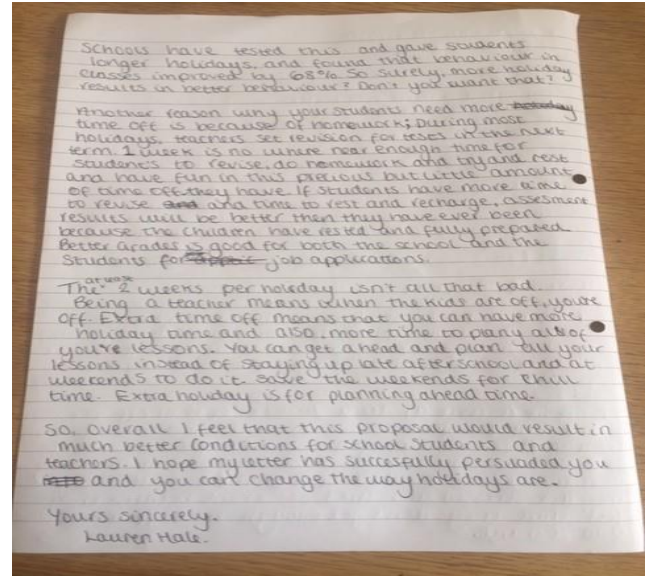 Schools have tested this and gave students
longer holidays, and found that behaviour in
classes improved by 68%. So surely, more holiday
results in better behaviour? Don't you want that?
Another reason why your students need more holiday
time off is because of homework; During most
holidays, teachers set revision for tests in the next
term. 1 week is no where near enough time for
students to revise, do homework and try and rest
and have fun in this precious but little amount
of time off they have. If students have more time
to revise and and time to rest and recharge, assesment
results will be better then they have ever been
because the children have rested and fully prepared.
Better Grades is good for both the school and the
students for job applications.
at least
The 2 weeks per holiday isn't all that bad.
Being a teacher means when the kids are off, you're
off. Extra time off means that you can have more
holiday time and also, more time to plany all of
you're lessons. You can get ahead and plan all your
lessons instead of staying up late afterschool and at
weekends to do it. Save the weekends for chill
time. Extra holiday is for planning ahead time.
So, overall I feel that this proposal would result in
much better conditions for school students and
teachers. I hope my letter has succesfully persuaded you
and you can change the way holidays are.
Yours sincerely.
Lauren Hale.